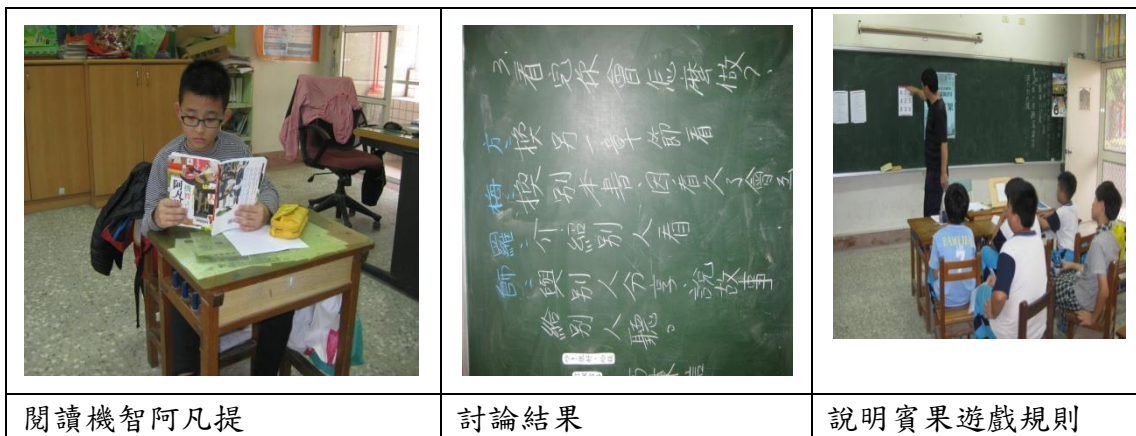 3看完後會怎麼做?
方:換另一章節看
梅:換別本書,因看久了會
羅:介紹別人看
師:與別人分享、說故事
給別人聽。
阿凡
閱讀機智阿凡提
討論結果
說明賓果遊戲規則